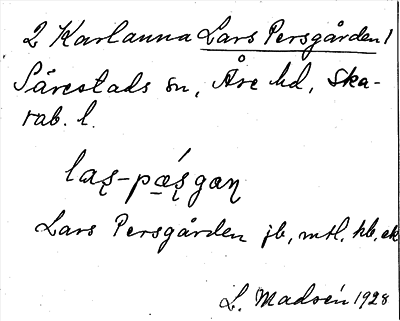 2 Karlanna Lars Persgården 1
Särestads sn, Åre hd, Ska-
rab. l.
laʂ-pæ̱ʂ́gaɳ
Lars Persgården jb, mtl, hb, ek
L. Madsén 1928